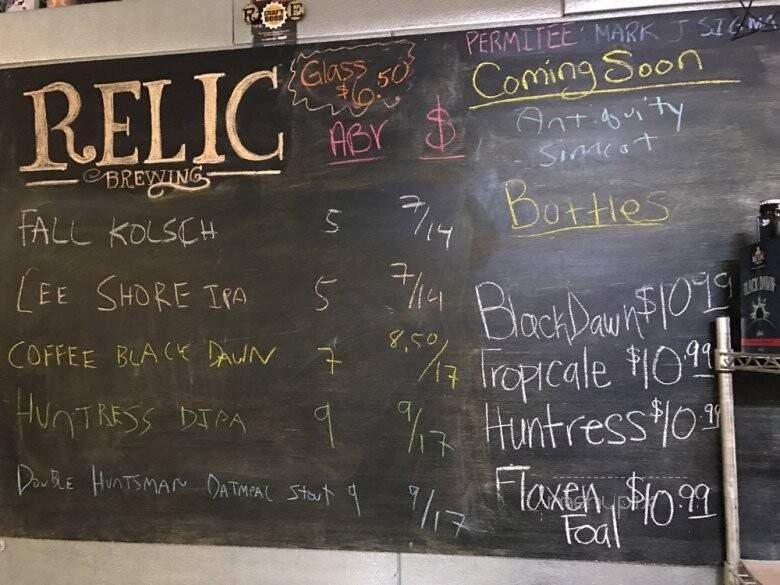 RELIC
BREWING
Glass
$6.50
ABV $
FALL KOLSCH 5 7/14
LEE SHORE IPA 5 7/14
COFFEE BLACK DAWN 7 8.50/17
HUNTRESS DIPA 9 9/17
DOUBLE HUNTSMAN OATMEAL Stout 9 9/17
PERMITEE: MARK J SIGMA
Coming Soon
Antiquity
Bottles
Black Dawn $10.99
Tropicale $10.99
Huntress $10.99
Flaxen $10.99
Foal
CRAFT
BEER
BLACK DAWN